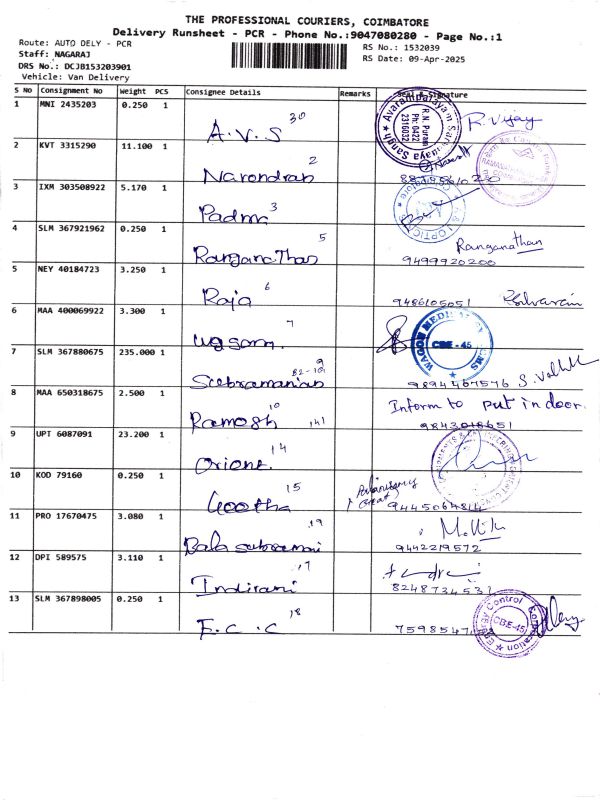 THE PROFESSIONAL COURIERS, COIMBATORE
Delivery Runsheet - PCR - Phone No.:9047080280 - Page No.:1
Route: AUTO DELY - PCR
RS No.: 1532039
Staff: NAGARAJ
RS Date: 09-Apr-2025
DRS No.: DCJB153203901
Vehicle: Van Delivery
S No Consignment No Weight PCS Consignee Details Remarks Seal & Signature
1 MNI 2435203 0.250 1 A.V.S 30 R. Vijay
R.N. Puram
Ph: 0422
2316032
2 KVT 3315290 11.100 1 Narendran 2
3 IXM 303508922 5.170 1 Padma 3
OPTICALS
4 SLM 367921962 0.250 1 Ranganathan 5 Ranganathan
9499920200
5 NEY 40184723 3.250 1 Raja 6
9486105051
6 MAA 400069922 3.300 1 7
WAGON MEDI SYSTEMS
CBE - 45
7 SLM 367880675 235.000 1 Subramanian 9
82-101
9894467576
8 MAA 650318675 2.500 1 Ramesh 10 141 Inform to put in door.
9843018651
9 UPT 6087091 23.200 1 Orient 14
10 KOD 79160 0.250 1 Geetha 15
9445064814
11 PRO 17670475 3.080 1 Bala subramani 19
9442219572
12 DPI 589575 3.110 1 Indirani 17
8248734531
13 SLM 367898005 0.250 1 E.C.C 18
Energy Control Corporation
CBE-45